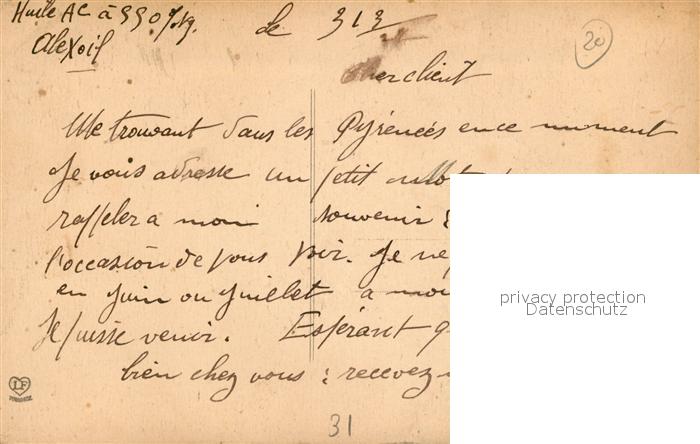 Huile AC à 550 f. kg. de 313
Alexoil
20
cher client
Me trouvant dans les Pyrénées en ce moment
Je vous adresse un petit
rappeler a mon souvenir
l'occasion de vous voir. Je ne
en Juin ou Juillet a
Je puisse venir. Espérant q
bien chez vous : recevez
privacy protection
Datenschutz
LF
31